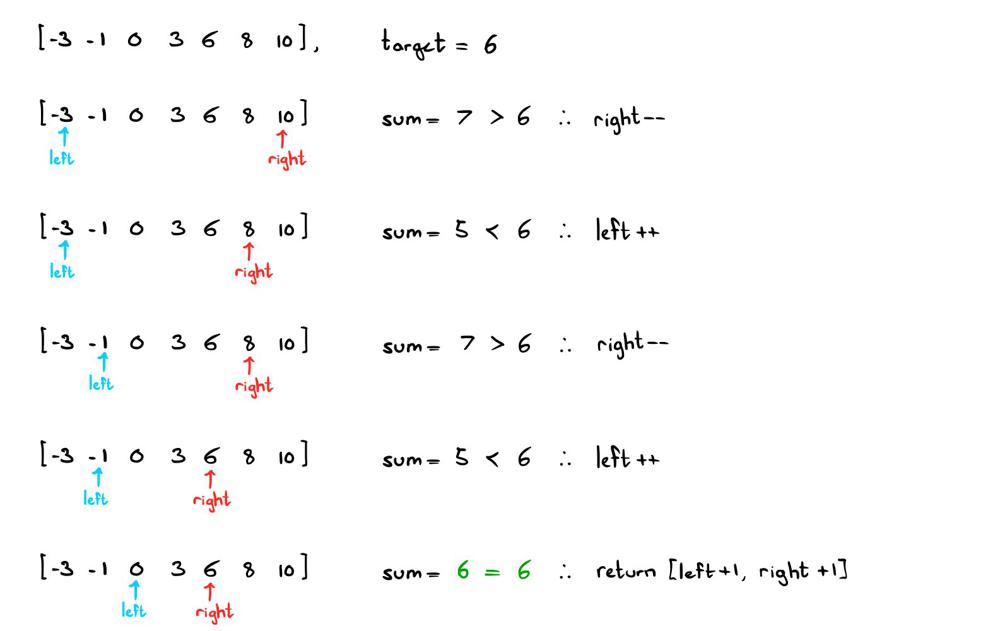 [-3 -1 0 3 6 8 10], target = 6
[-3 -1 0 3 6 8 10] sum = 7 > 6 ∴ right--
left right
[-3 -1 0 3 6 8 10] sum = 5 < 6 ∴ left++
left right
[-3 -1 0 3 6 8 10] sum = 7 > 6 ∴ right--
left right
[-3 -1 0 3 6 8 10] sum = 5 < 6 ∴ left++
left right
[-3 -1 0 3 6 8 10] sum = 6 = 6 ∴ return [left+1, right+1]
left right